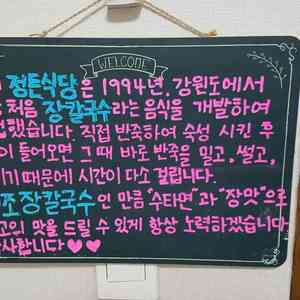 WELCOME
정든식당은 1994년, 강원도에서
처음 장칼국수라는 음식을 개발하여
했습니다. 직접 반죽하여 숙성 시킨 후
이 들어오면 그때 바로 반죽을 밀고, 썰고,
기 때문에 시간이 다소 걸립니다.
조장칼국수인 만큼 "수타면"과 "장맛"으로
고의 맛을 드릴 수 있게 항상 노력하겠습니다
사합니다♥♥